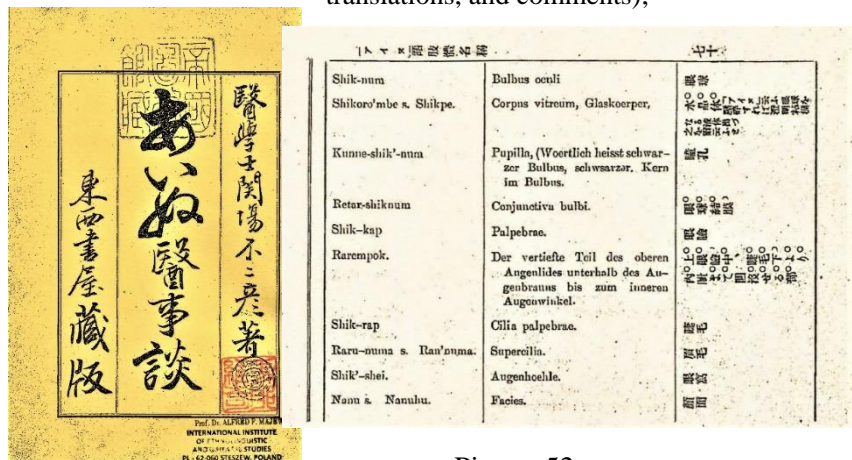 translations, and comments),
醫學士関場不二彦著
あいぬ醫事談
東西書屋藏版
Prof. Dr. ALFRED F. MAJEW
INTERNATIONAL INSTITUTE
OF ETHNOLINGUISTIC
AND ORIENTAL STUDIES
PL - 62-060 STĘSZEW, POLAND
アイヌ語肢體名稱 七十
Shik-num Bulbus oculi 眼球
Shikoro'mbe s. Shikpe. Corpus vitreum, Glaskoerper,
Kunne-shik'-num Pupilla, (Woertlich heisst schwar-
zer Bulbus, schwsarzer. Kern
im Bulbus.
Retar-shiknum Conjunctiva bulbi. 眼球結膜
Shik-kap Palpebrae. 眼瞼
Rarempok. Der vertiefte Teil des oberen
Augenlides unterhalb des Au-
genbrauns bis zum inneren
Augenwinkel.
Shik-rap Cilia palpebrae. 睫毛
Raru-numa s. Ran'numa. Supercilia. 眉毛
Shik'-shei. Augenhoehle. 眼窩
Nanu s. Nanuhu. Facies. 顔面